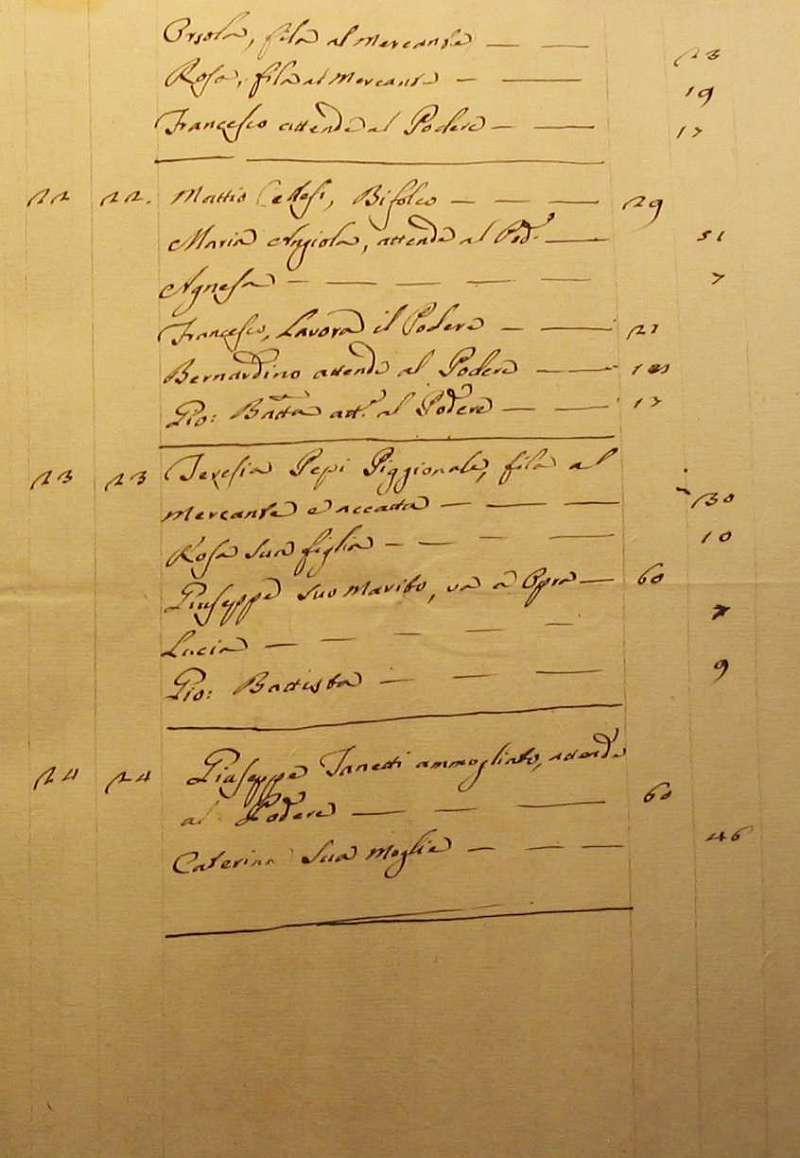 Orsola, fila al Mercante — — 23
Rosa, fila al Mercante — — 19
Francesco attende al Podere — — 17
22 22. Mattio Bifolco — — — 29
Maria Angiola, attende al Pod.e — 51
Agnesa — — — — — 7
Francesco, Lavora il Podere — — 21
Bernardino attende al Podere — —
Gio: Batta att.e al Podere — — 17
23 23 Teresia Pepi Piggionale, fila al
Mercante e accatta — — — 30
Rosa sua figlia — — — — 10
Giuseppe suo Marito, va a Opra — 60
Lucia — — — — — 7
Gio: Batista — — — — 9
24 24 Giuseppe Janetti ammogliato, attende
al Podere — — — — 60
Caterina sua Moglie — — — 46